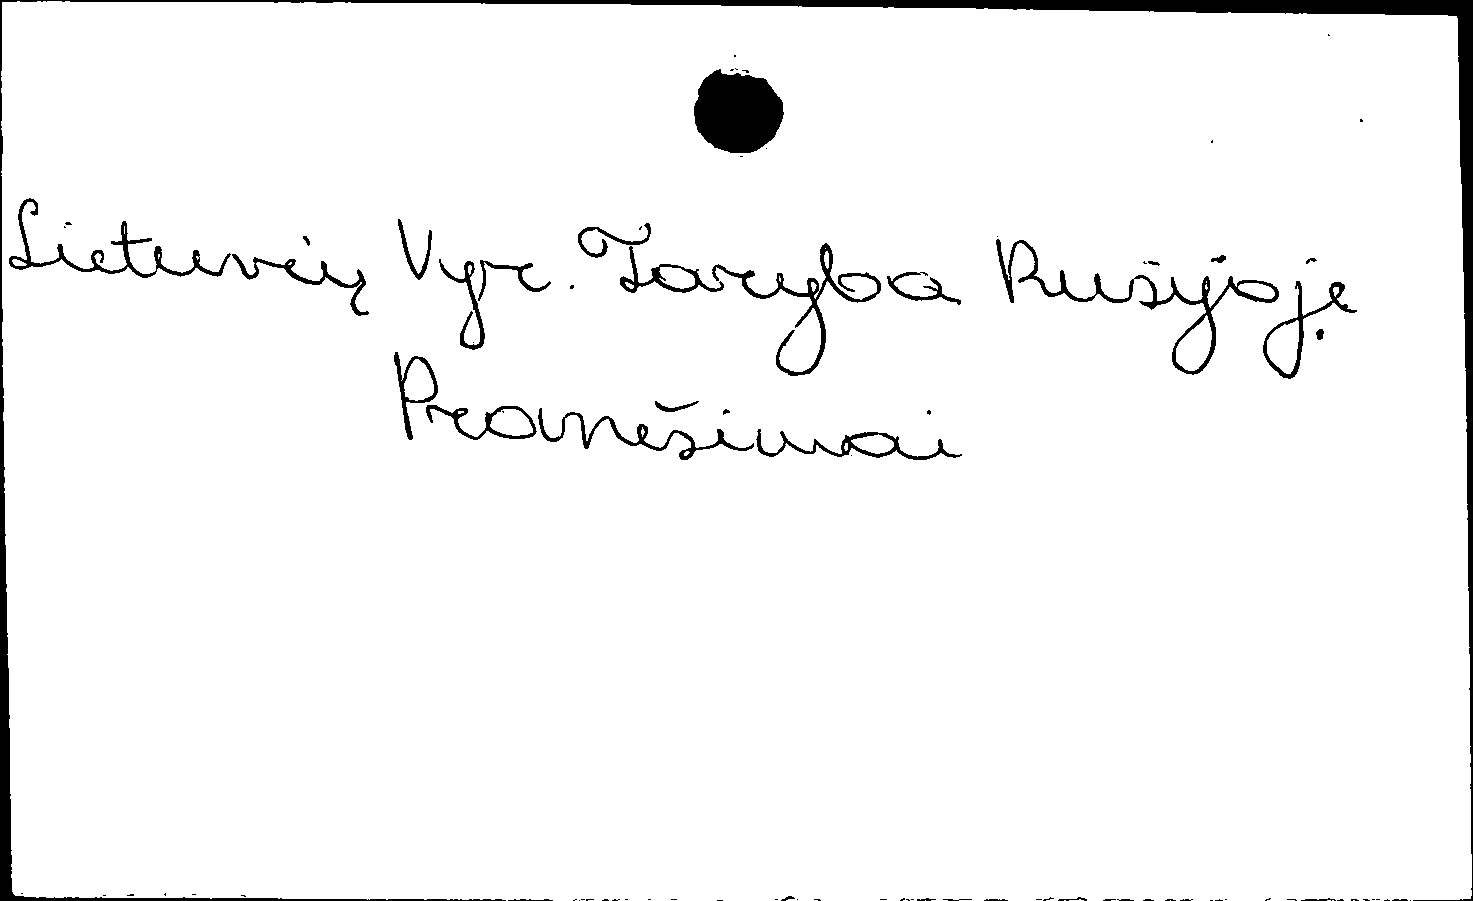 Lietuvių Vyr. Taryba Rusijoje.
Pranešimai